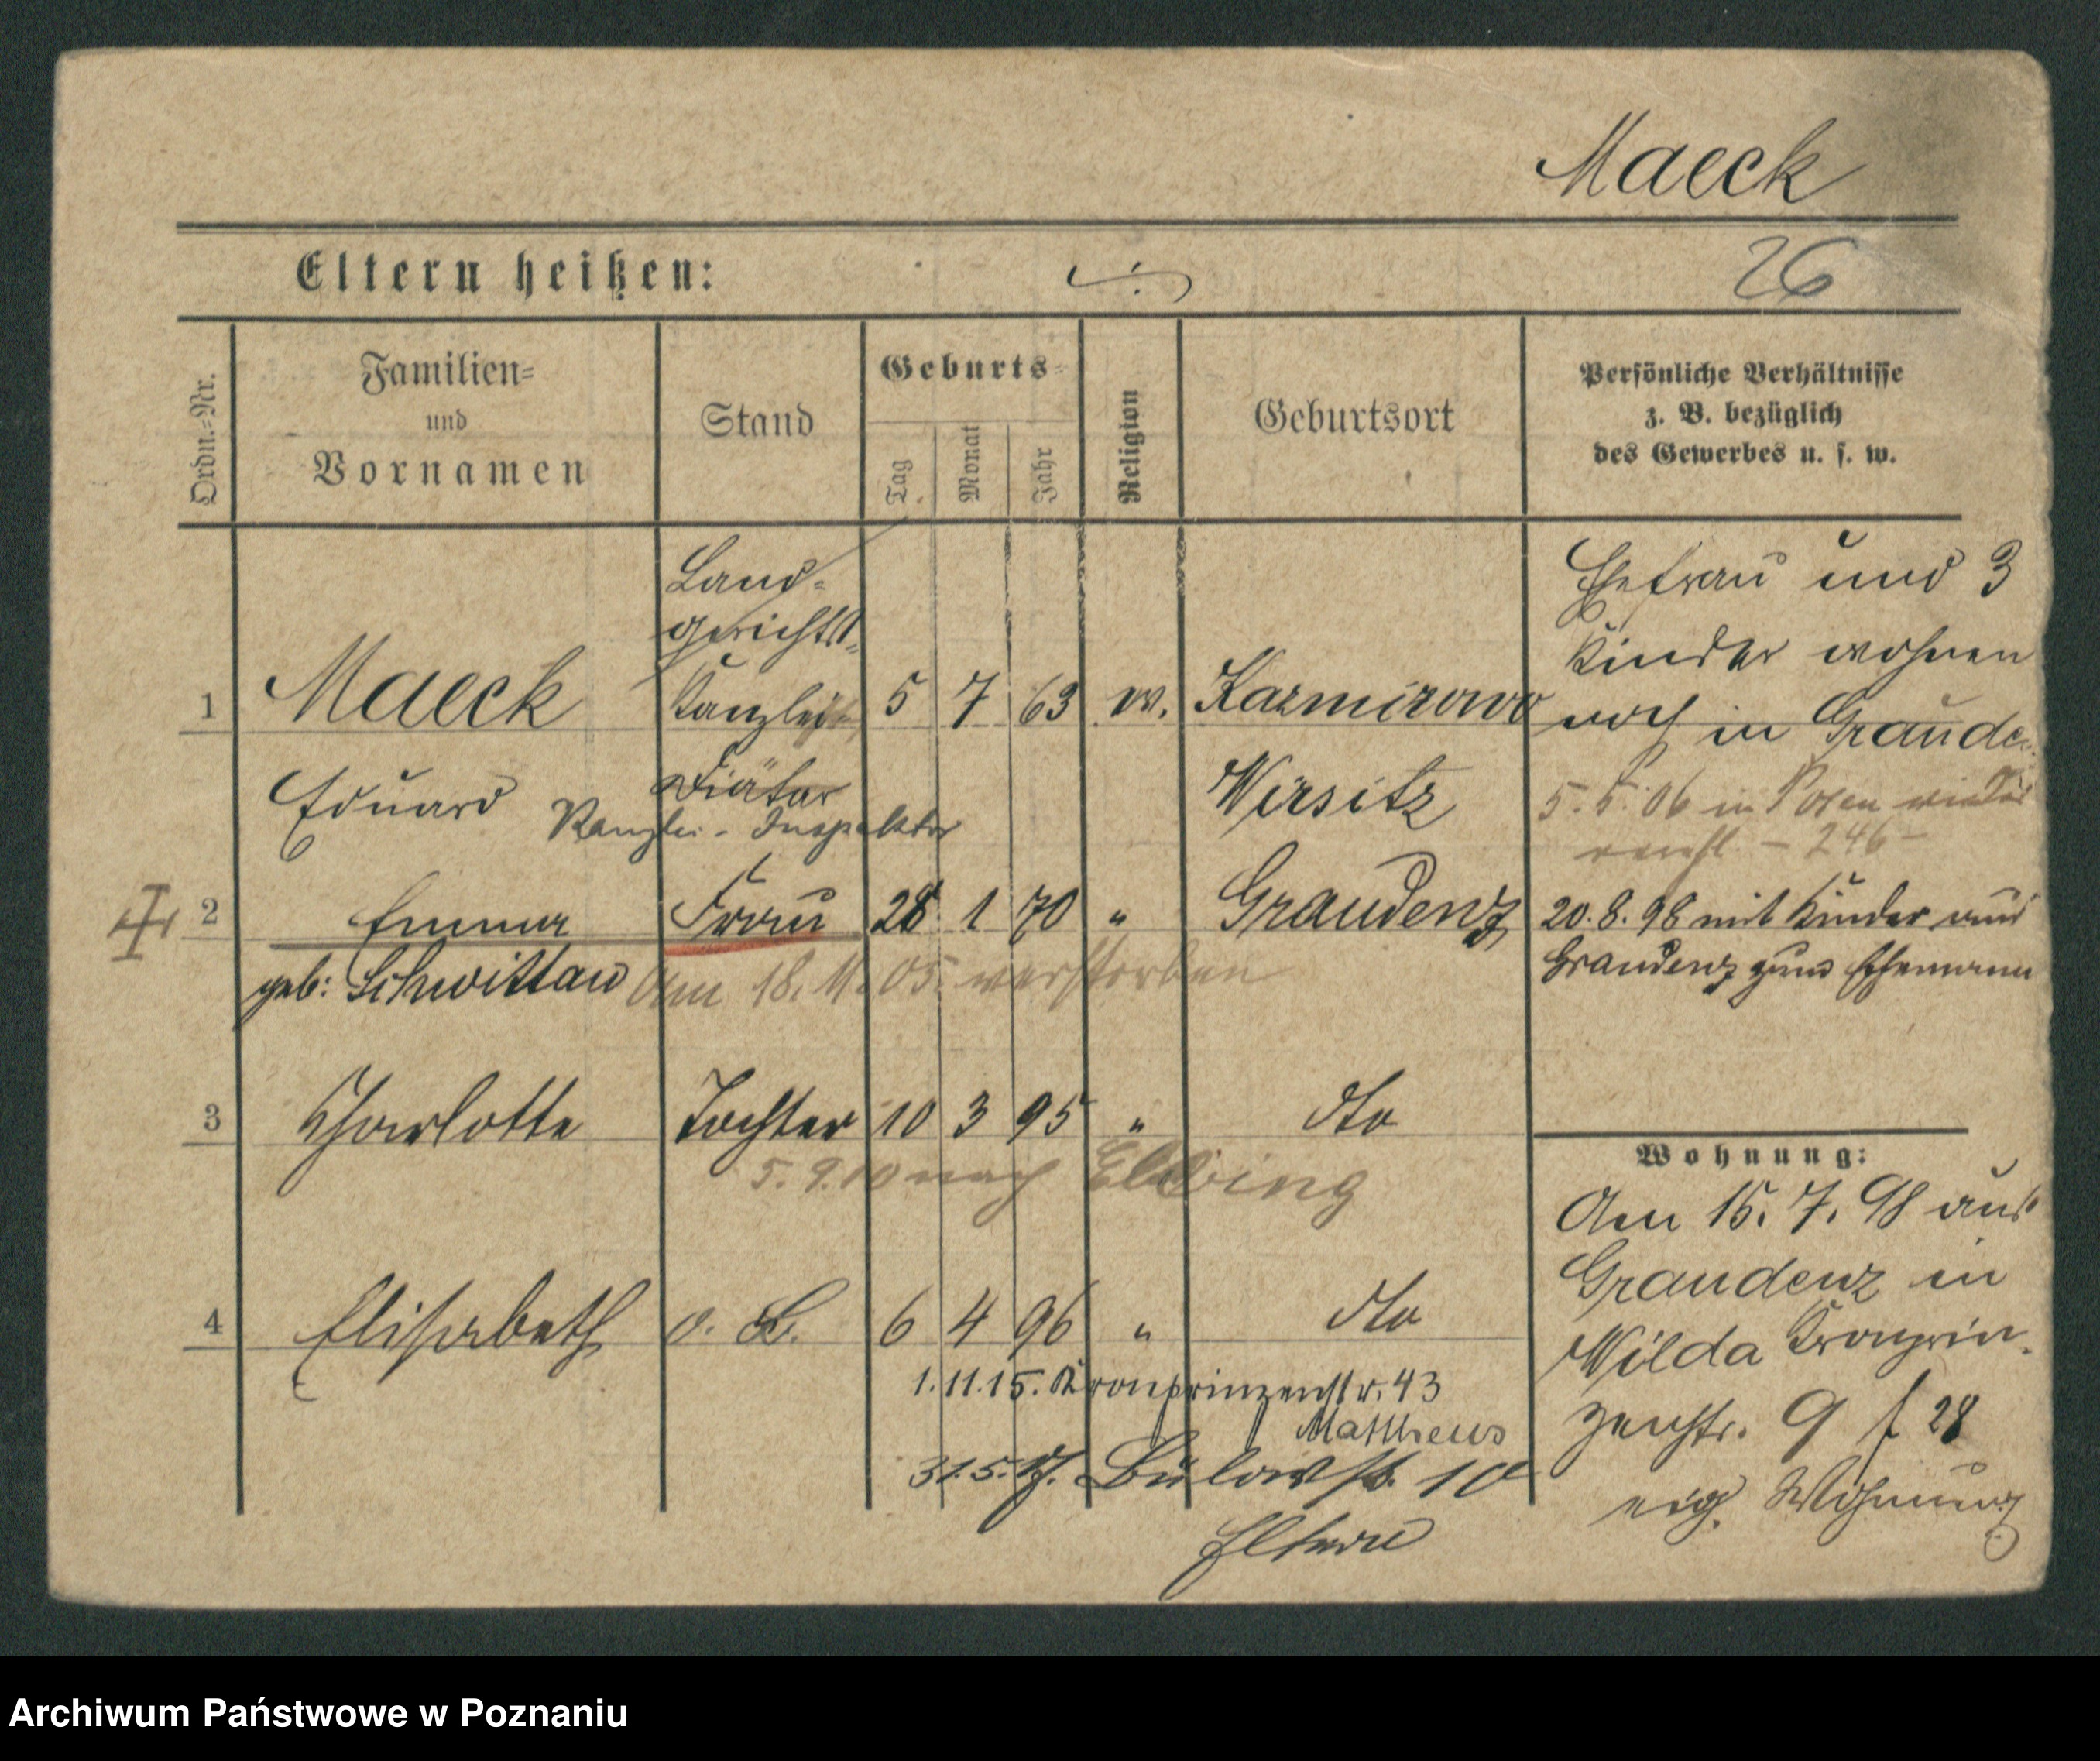 Maeck
Eltern heißen:
26
Ordn.-Nr.
Familien-
und
Vornamen
Stand
Geburts-
Tag
Monat
Jahr
Religion
Geburtsort
Persönliche Verhältnisse
z. B. bezüglich
des Gewerbes u. s. w.
Land-
gerichts-
1 Maeck Kanzlei 5 7 63 ev. Kazmirowo
Eduard Diätar Wirsitz
Kanzlei-Inspektor
Ehefrau und 3
Kinder wohnen
noch in Graudenz
5.5.06 in Posen wieder
verehl. - 246 -
2 Emma Frau 28 1 70 " Graudenz
geb: Schwittau Am 18.11.05 verstorben
20.8.98 mit Kinder aus
Graudenz zum Ehemann
3 Charlotte Tochter 10 3 95 " dto
5.9.10 nach Elbing
4 Elisabeth d. 6 4 96 " dto
1.11.15. Kronprinzenstr. 43
Mattheus
31.5.17. Bülowstr. 10
Eltern
Wohnung:
Am 15.7.98 aus
Graudenz in
Wilda Kronprin-
zenstr. 9 f 28
eig. Wohnung
Archiwum Państwowe w Poznaniu